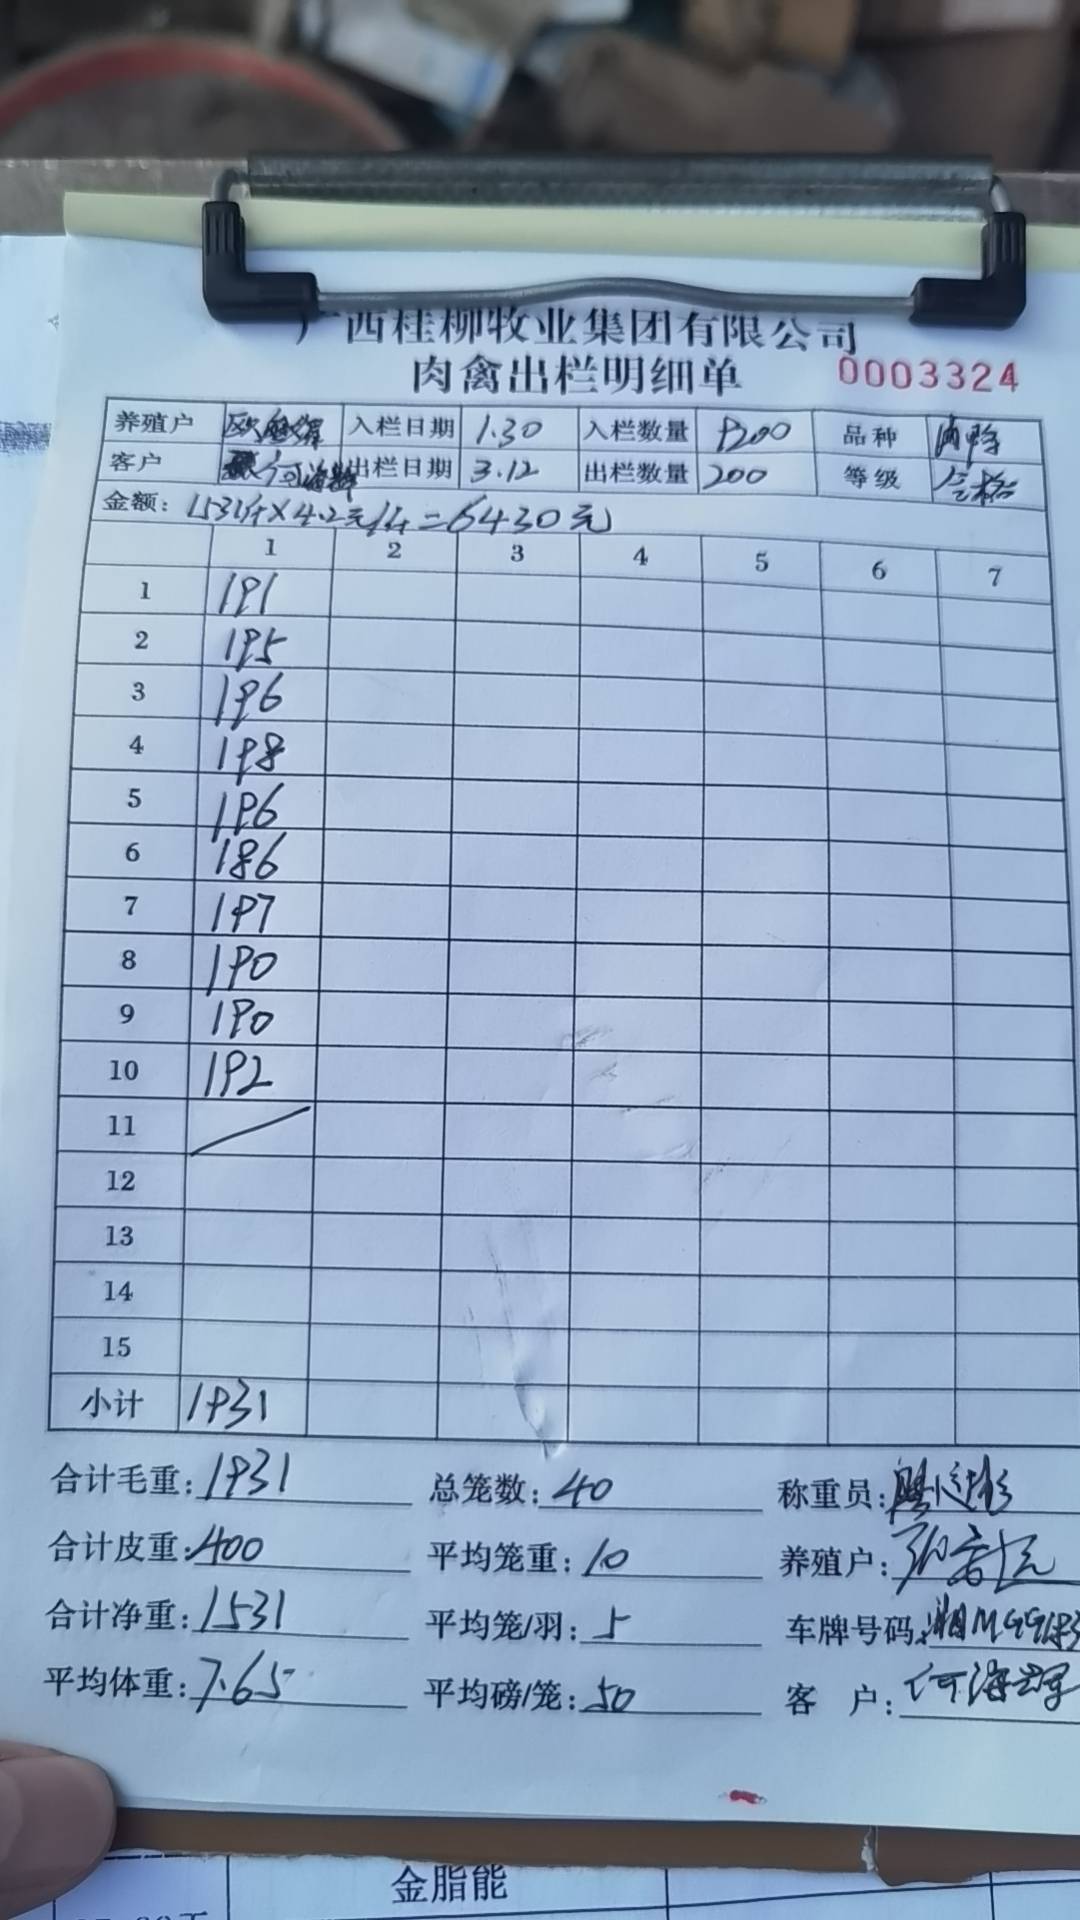 广西桂柳牧业集团有限公司
肉禽出栏明细单 0003324
养殖户 入栏日期 1.30 入栏数量 9200 品种 肉鸭
客户 何海辉 出栏日期 3.12 出栏数量 200 等级 合格
金额: 1531斤×4.2元/斤=6430元
1 2 3 4 5 6 7
1 191
2 195
3 196
4 198
5 196
6 186
7 197
8 190
9 190
10 192
11
12
13
14
15
小计 1931
合计毛重: 1931 总笼数: 40 称重员:
合计皮重: 400 平均笼重: 10 养殖户:
合计净重: 1531 平均笼/羽: 5 车牌号码:
平均体重: 7.65 平均磅/笼: 50 客 户: 何海辉
金脂能